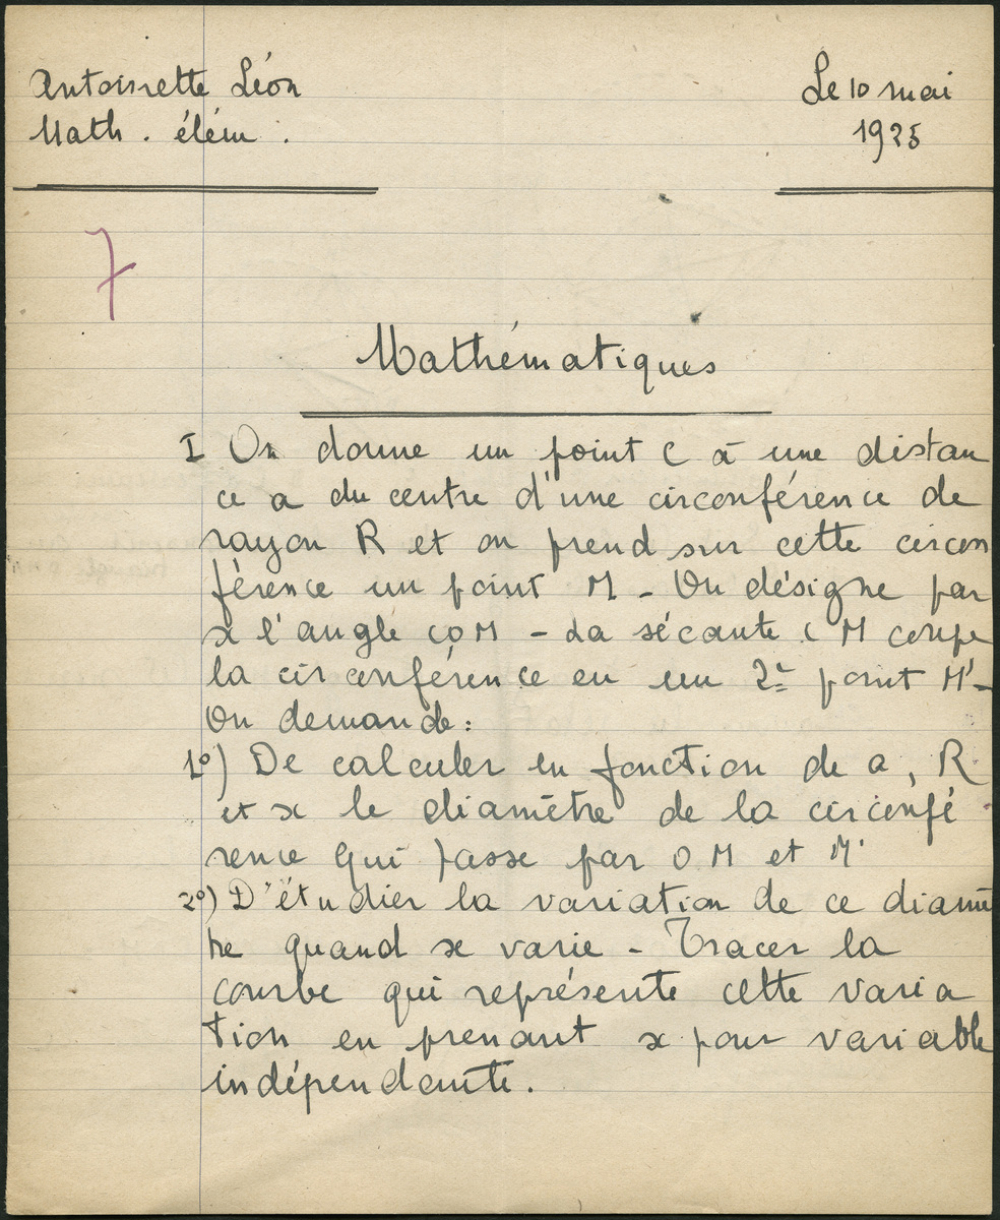 Antoinette Léon
Le 10 mai
Math. élém.
1925
7
Mathématiques
I On donne un point C à une distan
ce a du centre d'une circonférence de
rayon R et on prend sur cette circon
férence un point M - On désigne par
x l'angle COM - La sécante CM coupe
la circonférence en un 2e point M'-
On demande:
1o) De calculer en fonction de a, R
et x le diamètre de la circonfé
rence qui passe par O M et M'
2o) D'étudier la variation de ce diamè
tre quand x varie - Tracer la
courbe qui représente cette varia
tion en prenant x pour variable
indépendante.